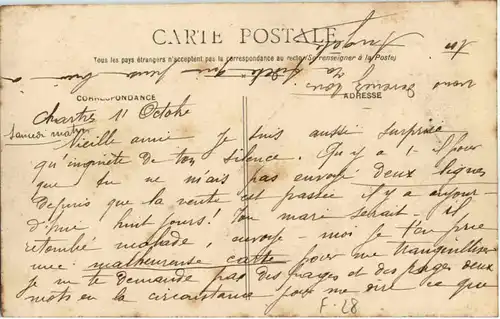 CARTE POSTALE
Tous les pays étrangers n'acceptent pas la correspondance au recto (Se renseigner à la Poste)
CORRESPONDANCE
ADRESSE
Chartres 11 Octobre
Samedi matin
Vieille amie Je suis aussi surprise
qu'inquiète de ton silence. Qu'y a-t-il pour
que tu ne m'ais pas envoyé deux lignes
Depuis que la vente est passée il y a aujour-
d'hui huit jours! Ton mari serait-il
retombé malade, envoie-moi je t'en prie
une malheureuse carte pour me tranquilliser
Je ne te demande pas des pages et des pages deux
mots en la circonstance pour me dire ce que
F-28